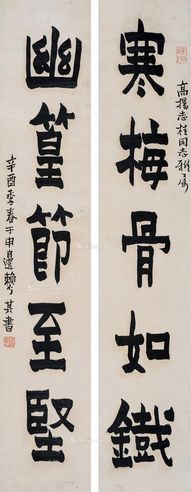 高揚志桂同志雅屬
寒梅骨如鐵
幽篁節至堅
辛酉季春于申邊賴少其書